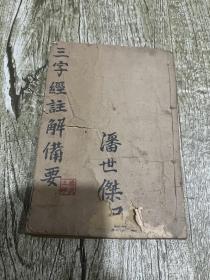 三字經註解備要
潘世傑